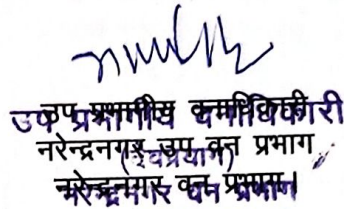 उप प्रभागीय वनाधिकारी
नरेन्द्रनगर उप वन प्रभाग
(देवप्रयाग)
नरेन्द्रनगर वन प्रभाग